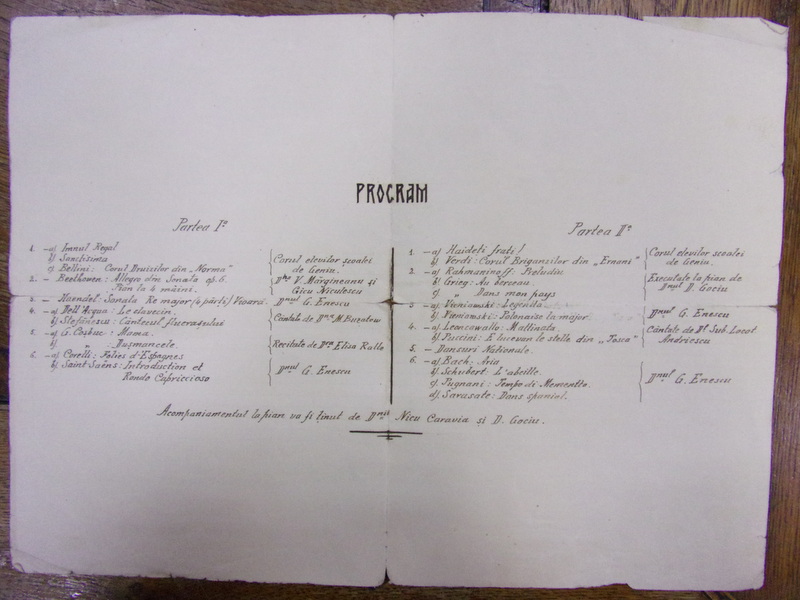 PROGRAM
Partea Iª
1. - a) Imnul Regal
b) Sanctisima
c) Bellini: Corul Druisilor din „Norma"
Corul elevilor școalei
de Geniu.
2. - Beethowen: Allegro din Sonata op. 6.
Pian la 4 mâini.
V. Mărgineanu și
Niculescu
3. - Haendel: Sonata Re major (4 părți) Vioară.
Dnul G. Enescu
4. - a) Dell'Acqua: Le clavecin.
b) Stefănescu: Cântecul fluerașului
Cântate de Dna M. Buzatow
5. - a) G. Coșbuc: Mama.
b) „ Dușmancele.
Recitate de Dra Elisa Ralle
6. - a) Corelli: Folies d'Espagnes
b) Saint Saëns: Introduction et
Rondo Capriccioso
Dnul G. Enescu
Partea IIª
1. - a) Haideți frați!
b) Verdi: Corul Briganzilor din „Ernani"
Corul elevilor școalei
de Geniu.
2. - a) Rahmaninoff: Preludiu
b) Grieg: Au berceau.
c) „ Dans mon pays
Executate la pian de
Dnul D. Gociu
3. - a) Veniamski: Legenda
b) Veniamski: Polonaise la major.
Dnul G. Enescu
4. - a) Leoncowallo: Mattinata
b) Puccini: E lucevan le stelle din „Tosca"
Cântate de Dl Sub. Locot
Andriescu
5. - Dansuri Nationale.
6. - a) Bach: Aria
b) Schubert: L'abeille.
c) Pugnani: Tempo di Menuetto
d) Sarasate: Dans spaniol.
Dnul G. Enescu
Acompaniamentul la pian va fi ținut de Dnii Nicu Caravia și D. Gociu.